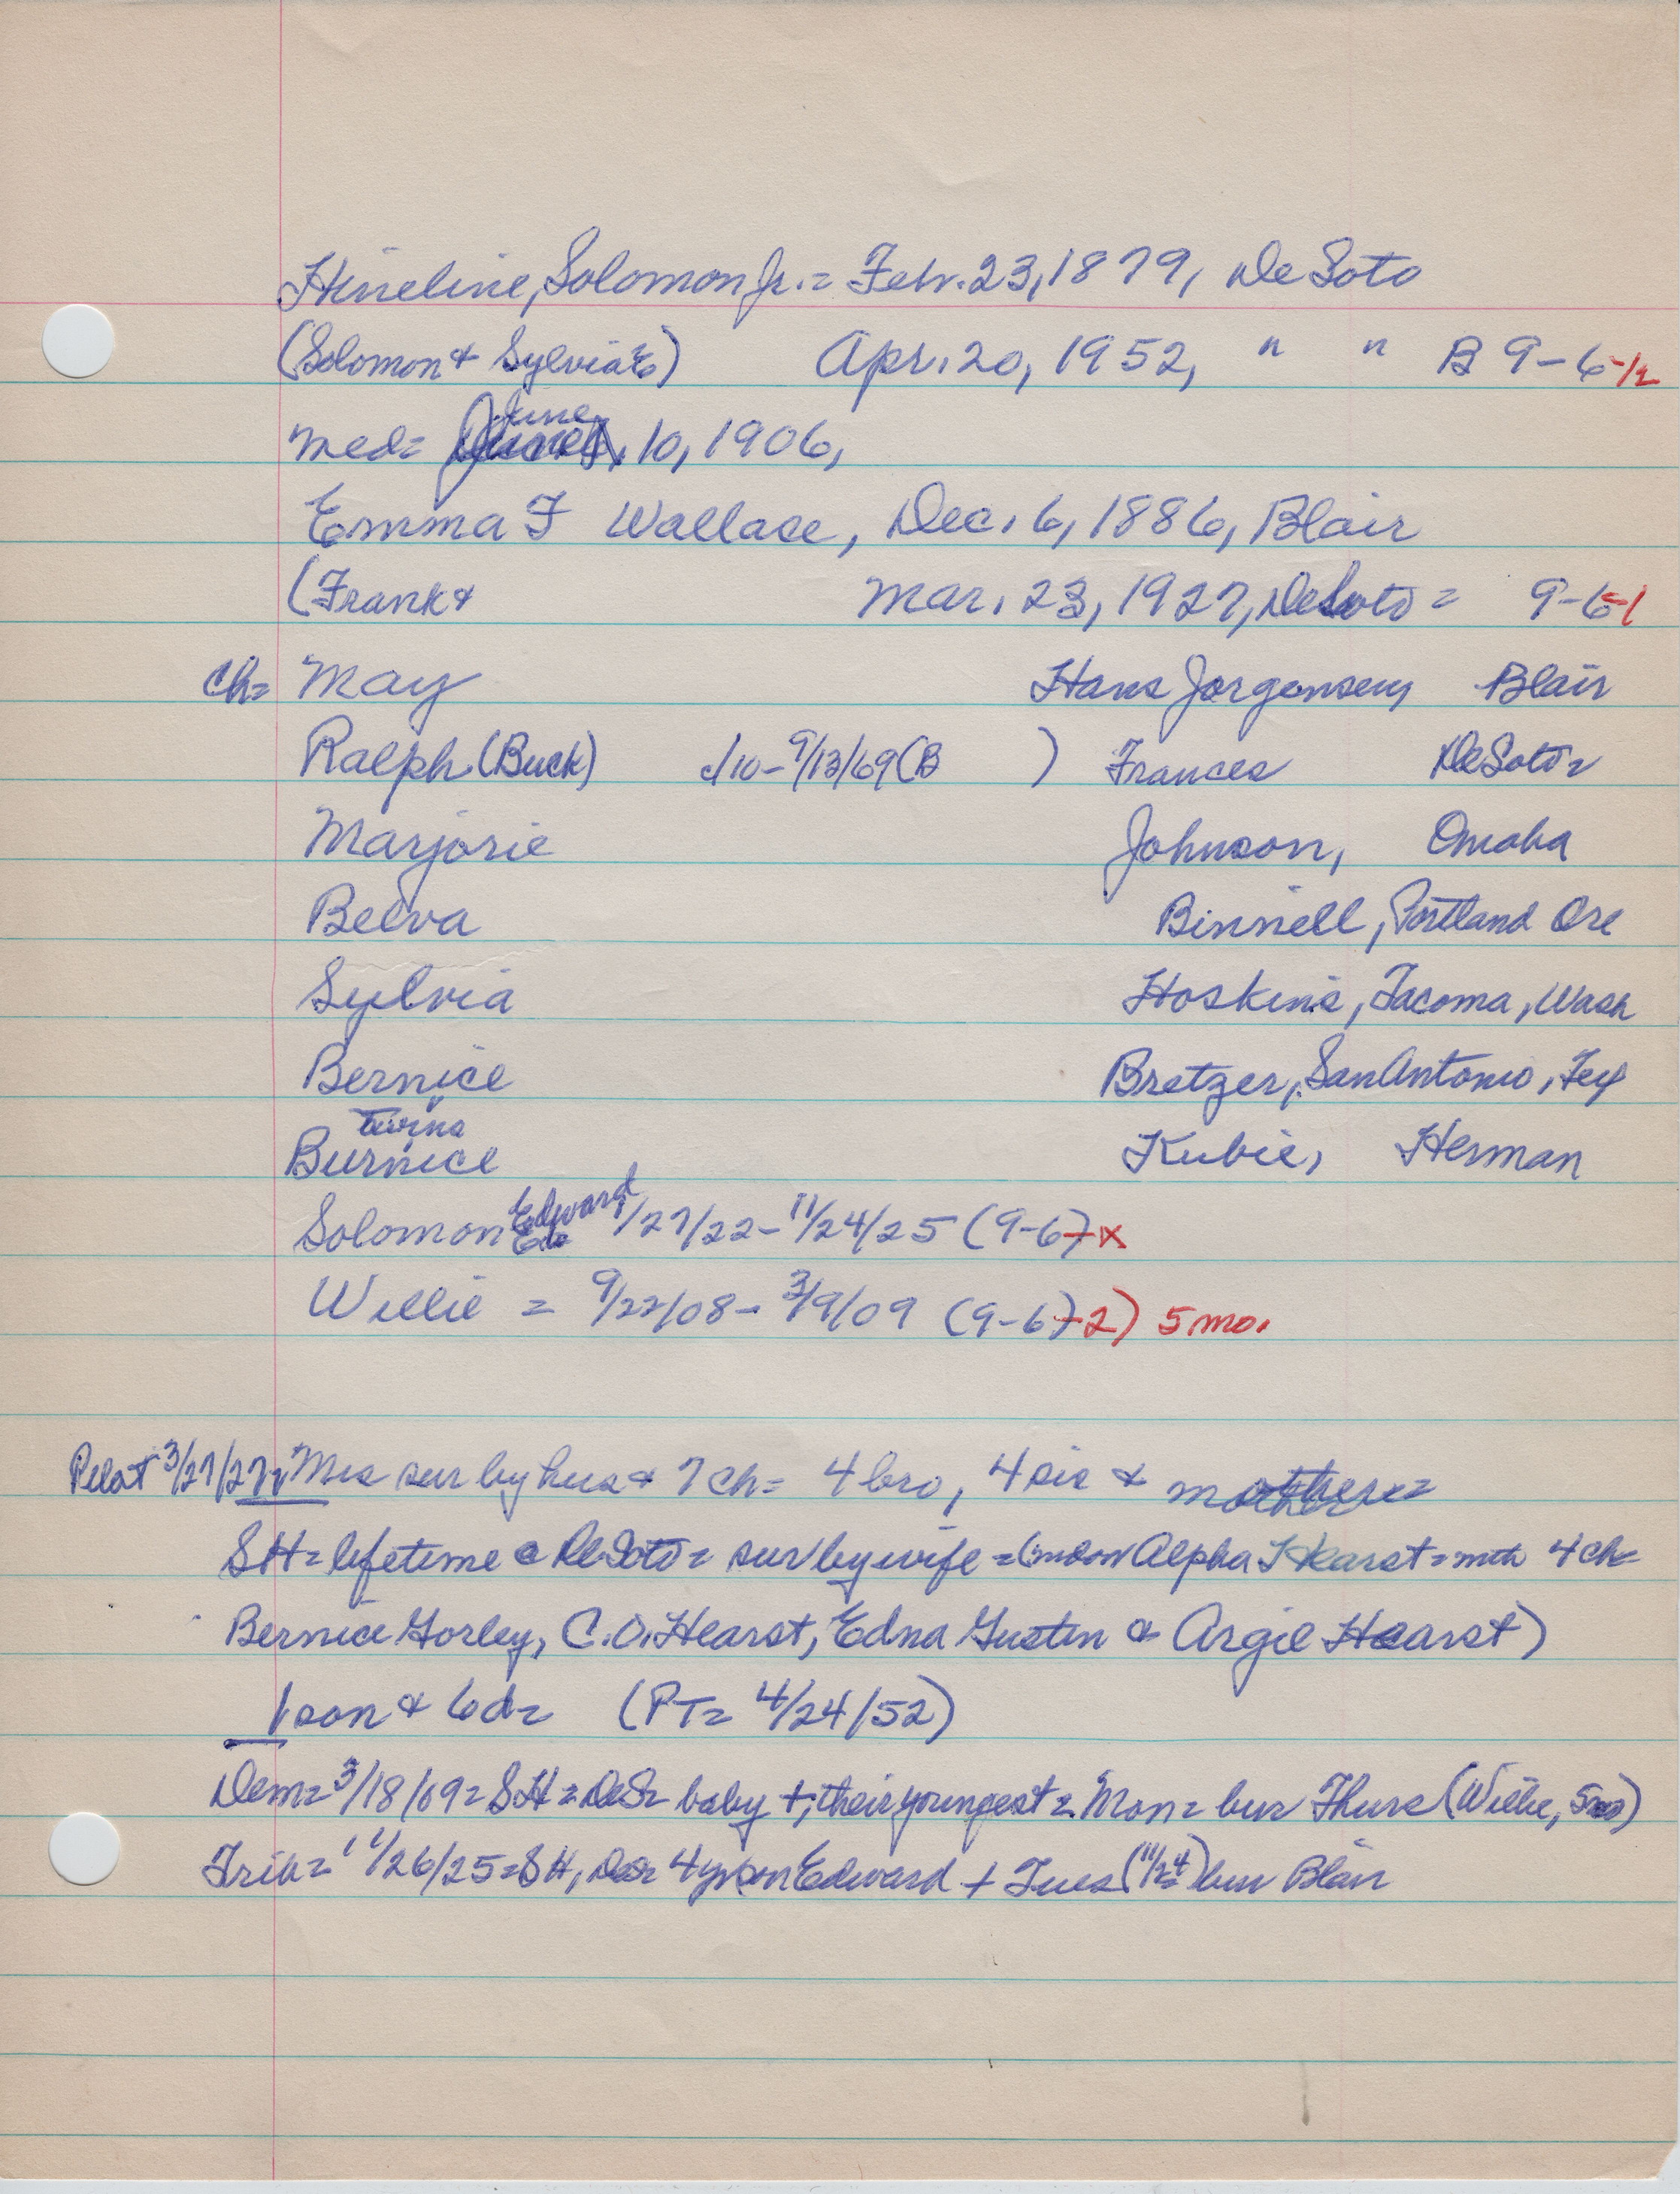 Hineline, Solomon Jr. = Feb. 23, 1879, De Soto
(Solomon & Sylvia E) Apr. 20, 1952, " " B 9-6-1/2
med= June 10, 1906,
Emma F Wallace, Dec. 6, 1886, Blair
(Frank & Mar. 23, 1927, DeSoto = 9-6-1
Ch= May Hans Jorgensen, Blair
Ralph (Buck) d 10- 9/13/69 (B ) Frances DeSoto=
Marjorie Johnson, Omaha
Belva Binnell, Portland Ore
Sylvia Hoskins, Tacoma, Wash
Bernice Bretzer, San Antonio, Tex
twins
Burnice Kubie, Herman
Solomon Edward 1/27/22 - 11/24/25 (9-6)-x
Willie = 9/22/08 - 3/9/09 (9-6)-2) 5 mo.
Pilot 3/27/27= Mrs sur by hus & 7 ch= 4 bro, 4 sis & mother=
SH= lifetime @ DeSoto= sur by wife = Alpha Hearst= mth 4 ch=
Bernice Gorley, C.O. Hearst, Edna Gustin & Argie Hearst)
1 son & 6 d= (PT= 4/24/52)
Dem= 3/18/09= SH= DeS= baby +; their youngest= Mon= bur Thurs (Willie, 5mo)
Trib= 11/26/25= SH, DeS= 4 yr son Edward + Tues (11/24) bur Blair